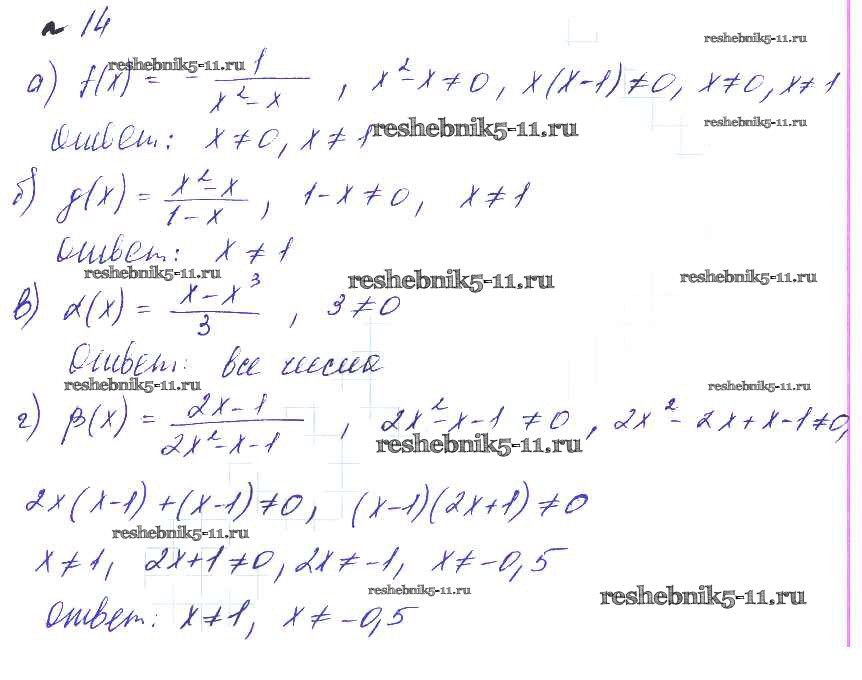 № 14
reshebnik5-11.ru
reshebnik5-11.ru
а) f(x) = - 1/(x² - x) , x² - x ≠ 0, x(x-1) ≠ 0, x ≠ 0, x ≠ 1
reshebnik5-11.ru
Ответ: x ≠ 0, x ≠ 1
reshebnik5-11.ru
б) g(x) = (x² - x)/(1 - x) , 1 - x ≠ 0, x ≠ 1
Ответ: x ≠ 1
reshebnik5-11.ru
reshebnik5-11.ru
reshebnik5-11.ru
в) α(x) = (x - x³)/3 , 3 ≠ 0
Ответ: все числа
reshebnik5-11.ru
reshebnik5-11.ru
г) β(x) = (2x - 1)/(2x² - x - 1) , 2x² - x - 1 ≠ 0, 2x² - 2x + x - 1 ≠ 0,
reshebnik5-11.ru
2x(x-1) + (x-1) ≠ 0, (x-1)(2x+1) ≠ 0
reshebnik5-11.ru
x ≠ 1, 2x+1 ≠ 0, 2x ≠ -1, x ≠ -0,5
reshebnik5-11.ru
reshebnik5-11.ru
Ответ: x ≠ 1, x ≠ -0,5